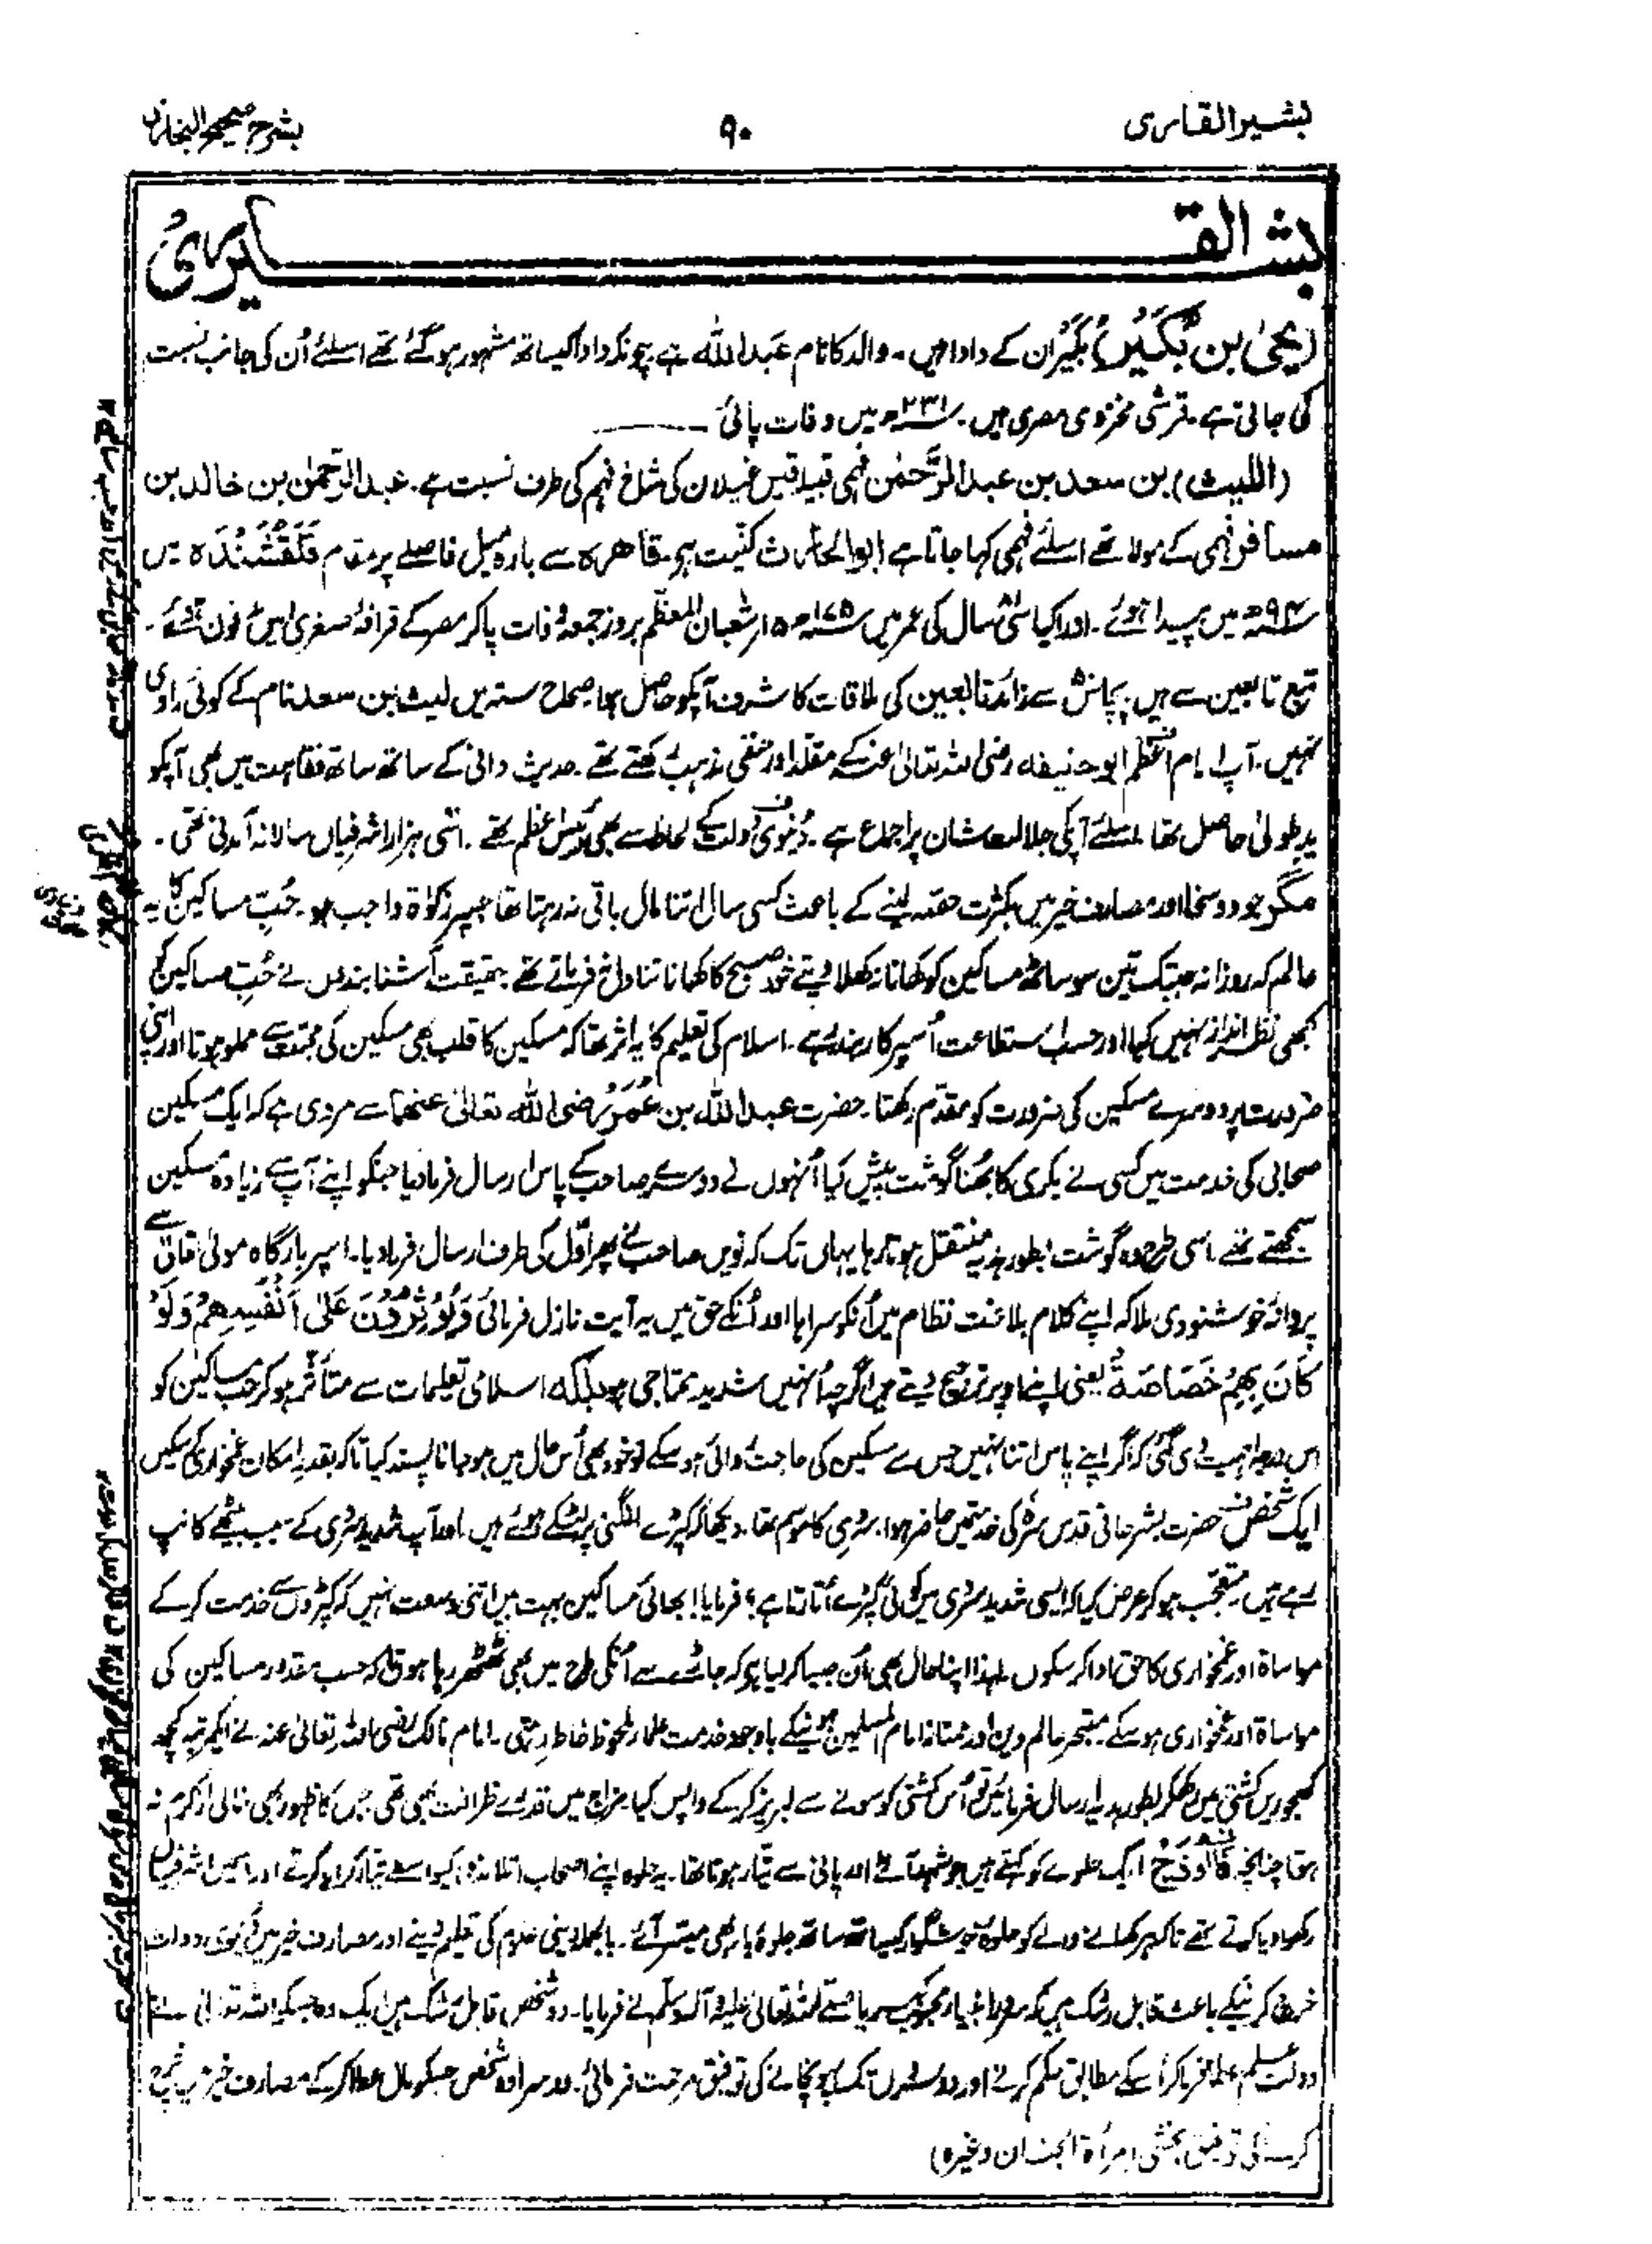 بشیر القاری
۹۰
بشرح صحیح البخاری
بشیر القاری
(یحییٰ بن بُکَیْر) بُکَیْر ان کے دادا ہیں۔ والد کا نام عبداللہ ہے چونکہ دادا کیساتھ مشہور ہوگئے تھے اسلئے اُن کی جانب نسبت
کی جاتی ہے۔ قرشی مخزومی مصری ہیں۔ ۲۳۱ھ میں وفات پائی
(اللیث) بن سعد بن عبد الرَّحمٰن فہمی قبیلہ قیس غیلان کی شاخ فہم کی طرف نسبت ہے۔ عبد الرحمٰن بن خالد بن
مسافر فہمی کے مولا تھے اسلئے فہمی کہا جاتا ہے ابوالحارث کنیت ہے۔ قاھرہ سے بارہ میل فاصلے پر مقام قَلْقَشَنْدَہ میں
۹۴ھ میں پیدا ہوئے۔ اور اکیاسی سال کی عمر میں ۱۷۵ھ ۱۵ر شعبان المعظم بروز جمعہ وفات پاکر مصر کے قرافہ صغریٰ میں مدفون ہوئے۔
تبع تابعین سے ہیں۔ پچاس سے زائد تابعین کی ملاقات کا شرف آپکو حاصل ہوا صحاح ستہ میں لیث بن سعد نام کے کوئی راوی
نہیں۔ آپ امام اعظم ابو حنیفہ رضی اللہ تعالیٰ عنہ کے مقلد اور حنفی مذہب رکھتے تھے۔ حدیث دانی کے ساتھ ساتھ فقاہت میں بھی آپکو
یدِ طولیٰ حاصل تھا اسلئے آپکی جلالت شان پر اجماع ہے۔ دُنیوی دولت کے لحاظ سے بھی رئیس اعظم تھے۔ اسّی ہزار اشرفیاں سالانہ آمدنی تھی۔
مگر جود و سخا اور مصارف خیر میں بکثرت حصہ لینے کے باعث کسی سال اتنا مال باقی نہ رہتا تھا جسپر زکوٰۃ واجب ہو۔ حُبِّ مساکین کا یہ
عالم کہ روزانہ جبتک تین سو ساٹھ مساکین کو کھانا نہ کھلا دیتے خود صبح کا کھانا تناول نہ فرماتے تھے۔ حقیقت آشنا بندوں نے حُبِّ مساکین کو
کبھی نظر انداز نہیں کیا اور حسب استطاعت اُسپر کاربند رہے۔ اسلام کی تعلیم کا یہ اثر تھا کہ مسکین کا قلب بھی مسکین کی محبت سے مملو ہوتا اور اپنی
ضرورت پر دوسرے مسکین کی ضرورت کو مقدم رکھتا۔ حضرت عبد اللہ بن عُمَر رضی اللہ تعالیٰ عنھما سے مروی ہے کہ ایک مسکین
صحابی کی خدمت میں کسی نے بکری کا بھُنا گوشت پیش کیا اُنہوں نے دوسرے صاحب کے پاس ارسال فرمادیا جنکو اپنے آپ سے زیادہ مسکین
سمجھتے تھے۔ اسی طرح وہ گوشت بطور ہدیہ منتقل ہوتا رہا یہاں تک کہ نویں صاحب نے پھر اوّل کی طرف ارسال فرمادیا۔ اسپر بارگاہ مولیٰ تعالیٰ سے
پروانۂ خوشنودی ملا کہ اپنے کلام بلاغت نظام میں اُنکو سراہا اور اُنکے حق میں یہ آیت نازل فرمائی وَیُؤْثِرُوْنَ عَلیٰ اَنْفُسِھِمْ وَلَوْ
کَانَ بِھِمْ خَصَاصَۃٌ یعنی اپنے اوپر ترجیح دیتے ہیں اگرچہ اُنہیں شدید محتاجی ہو بلکہ اسلامی تعلیمات سے متأثر ہو کر حبِّ مساکین کو
اس درجہ اہمیت دی گئی کہ اگر اپنے پاس اتنا نہیں جس سے مسکین کی حاجت روائی ہو سکے تو خود بھی اُس حال میں ہو جانا پسند کیا تاکہ بقدر امکان غمخواری کر سکیں
ایک شخص حضرت بشر حافی قدس سرہ کی خدمت میں حاضر ہوا۔ سردی کا موسم تھا۔ دیکھا کہ کپڑے الگنی پر لٹکے ہوئے ہیں اور آپ شدید سردی کے سبب بیٹھے کانپ
رہے ہیں متعجب ہو کر عرض کیا کہ ایسی شدید سردی میں کوئی کپڑے اُتارتا ہے؟ فرمایا! بھائی مساکین بہت ہیں اتنی وسعت نہیں کہ کپڑوں سے خدمت کر کے
مواساۃ اور غمخواری کا حق ادا کر سکوں لہذا اپنا حال بھی اُن جیسا کر لیا ہے کہ جاڑے سے اُنکی طرح میں بھی ٹھٹھر رہا ہوں تاکہ حسب مقدور مساکین کی
مواساۃ اور غمخواری ہو سکے۔ متبحر عالم دین اور ممتاز امام المسلمین ہونیکے باوجود خدمت علماء ملحوظ خاطر رہتی۔ امام مالک رضی اللہ تعالیٰ عنہ نے ایکمرتبہ کچھ
کھجوریں کشتی میں رکھکر بطور ہدیہ ارسال فرمائیں تو اُس کشتی کو سونے سے لبریز کر کے واپس کیا۔ مزاج میں قدرے ظرافت بھی تھی جس کا ظہور بھی خالی از کرم نہ
ہوتا چنانچہ فالوذج ایک حلوے کو کہتے ہیں جو شہد آٹے اور پانی سے تیار ہوتا تھا۔ یہ حلوہ اپنے اصحاب تلامذہ کیواسطے تیار کرایا کرتے اور اسمیں اشرفیاں
رکھوا دیا کرتے تھے تاکہ ہر کھانے والے کو حلوہ خوشگوار کیساتھ ساتھ جلوۂ یار بھی میسر آئے۔ بالجملہ دینی علوم کی تعلیم دینے اور مصارف خیر میں دُنیوی دولت
خرچ کرنیکے باعث قابل رشک ہیں کہ صلے اللہ تعالیٰ علیہ وآلہ وسلم نے فرمایا۔ دو شخص قابل رشک ہیں ایک وہ جسکو اللہ تعالیٰ نے
دولت علم عطا فرما کر اُسکے مطابق حکم کرنے اور دوسروں تک پہونچانے کی توفیق مرحمت فرمائی۔ دوسرا وہ شخص جسکو مال عطا کر کے مصارف خیر میں خرچ
کرنے کی توفیق بخشی (مرأۃ الجنان وغیرہ)